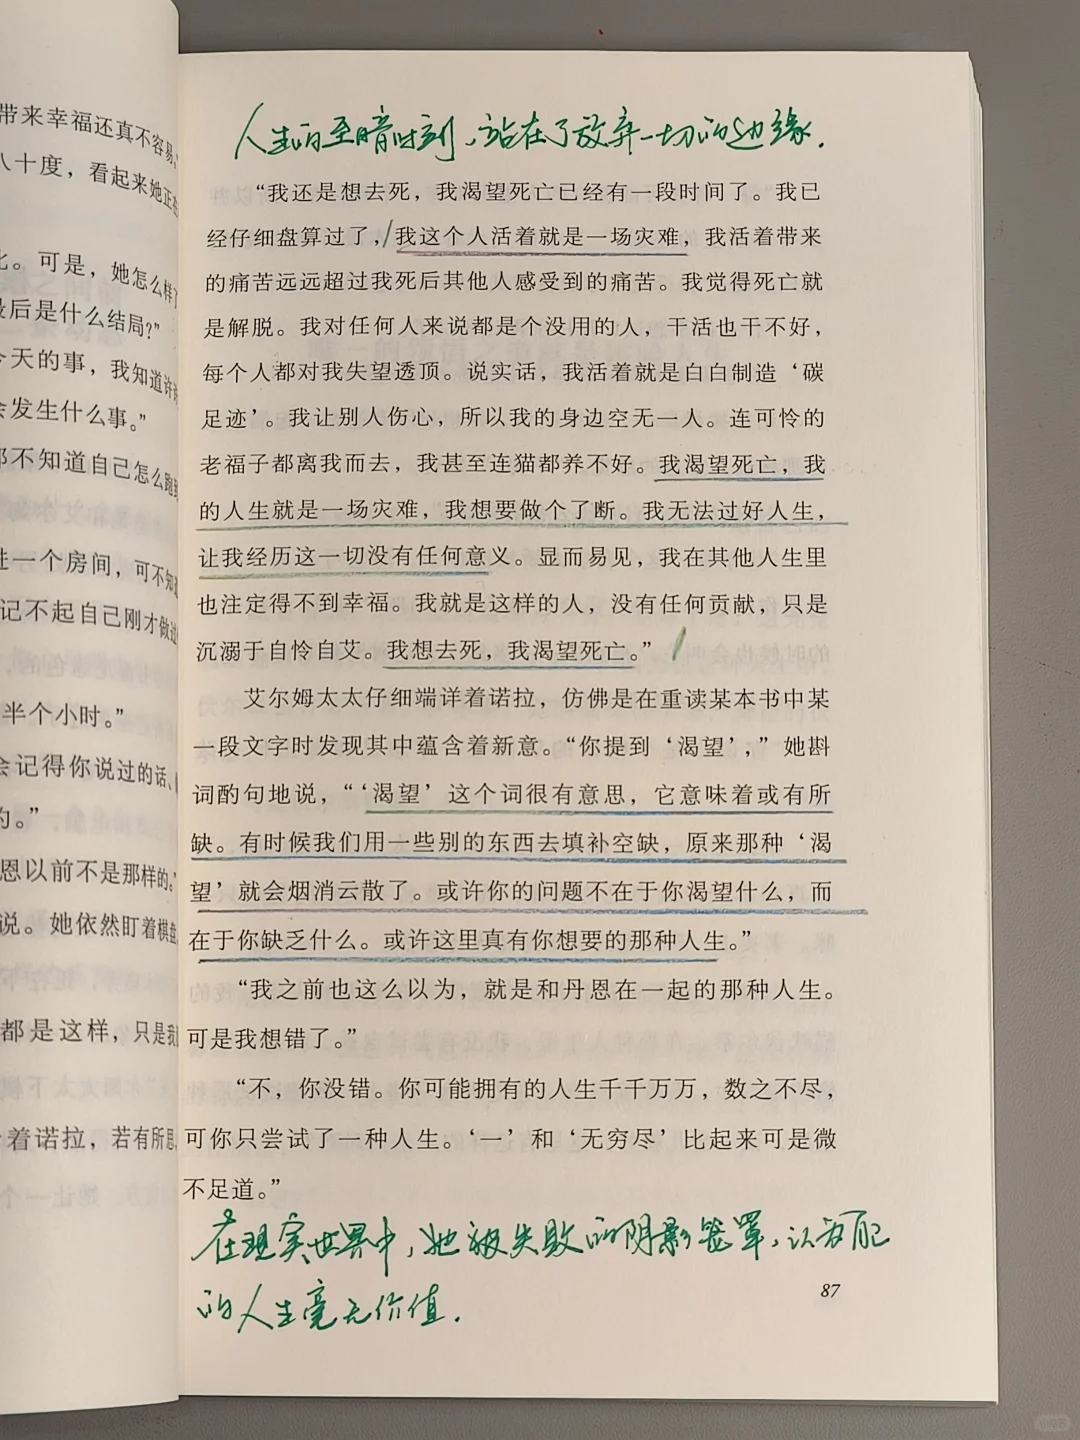 带来幸福还真不容易
八十度，看起来她正在
比。可是，她怎么样了
最后是什么结局？”
今天的事，我知道许
会发生什么事。”
都不知道自己怎么跑到
进一个房间，可不知道
记不起自己刚才做过
半个小时。”
会记得你说过的话、
的。”
恩以前不是那样的。”
说。她依然盯着棋盘
都是这样，只是我
着诺拉，若有所思
人生的至暗时刻，站在了放弃一切的边缘.
“我还是想去死，我渴望死亡已经有一段时间了。我已
经仔细盘算过了，我这个人活着就是一场灾难，我活着带来
的痛苦远远超过我死后其他人感受到的痛苦。我觉得死亡就
是解脱。我对任何人来说都是个没用的人，干活也干不好，
每个人都对我失望透顶。说实话，我活着就是白白制造‘碳
足迹’。我让别人伤心，所以我的身边空无一人。连可怜的
老福子都离我而去，我甚至连猫都养不好。我渴望死亡，我
的人生就是一场灾难，我想要做个了断。我无法过好人生，
让我经历这一切没有任何意义。显而易见，我在其他人生里
也注定得不到幸福。我就是这样的人，没有任何贡献，只是
沉溺于自怜自艾。我想去死，我渴望死亡。”
艾尔姆太太仔细端详着诺拉，仿佛是在重读某本书中某
一段文字时发现其中蕴含着新意。“你提到‘渴望’，”她斟
词酌句地说，“‘渴望’这个词很有意思，它意味着或有所
缺。有时候我们用一些别的东西去填补空缺，原来那种‘渴
望’就会烟消云散了。或许你的问题不在于你渴望什么，而
在于你缺乏什么。或许这里真有你想要的那种人生。”
“我之前也这么以为，就是和丹恩在一起的那种人生。
可是我想错了。”
“不，你没错。你可能拥有的人生千千万万，数之不尽，
可你只尝试了一种人生。‘一’和‘无穷尽’比起来可是微
不足道。”
在现实世界中，她被失败的阴影笼罩，认为自己
的人生毫无价值.
87